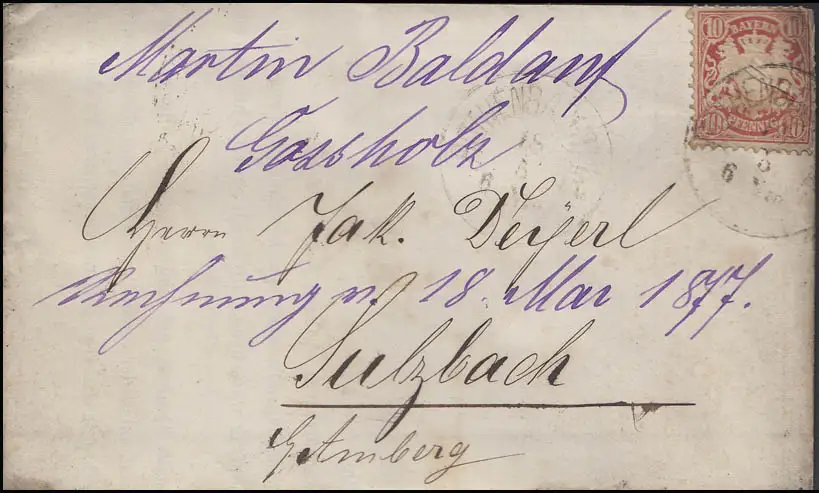 Martin Baldauf
Gossholz
Herrn Jak. Deyerl
Rechnung v. 18. Mai 1877.
Sulzbach
b/Amberg
10 BAYERN 10
10 PFENNIG 10